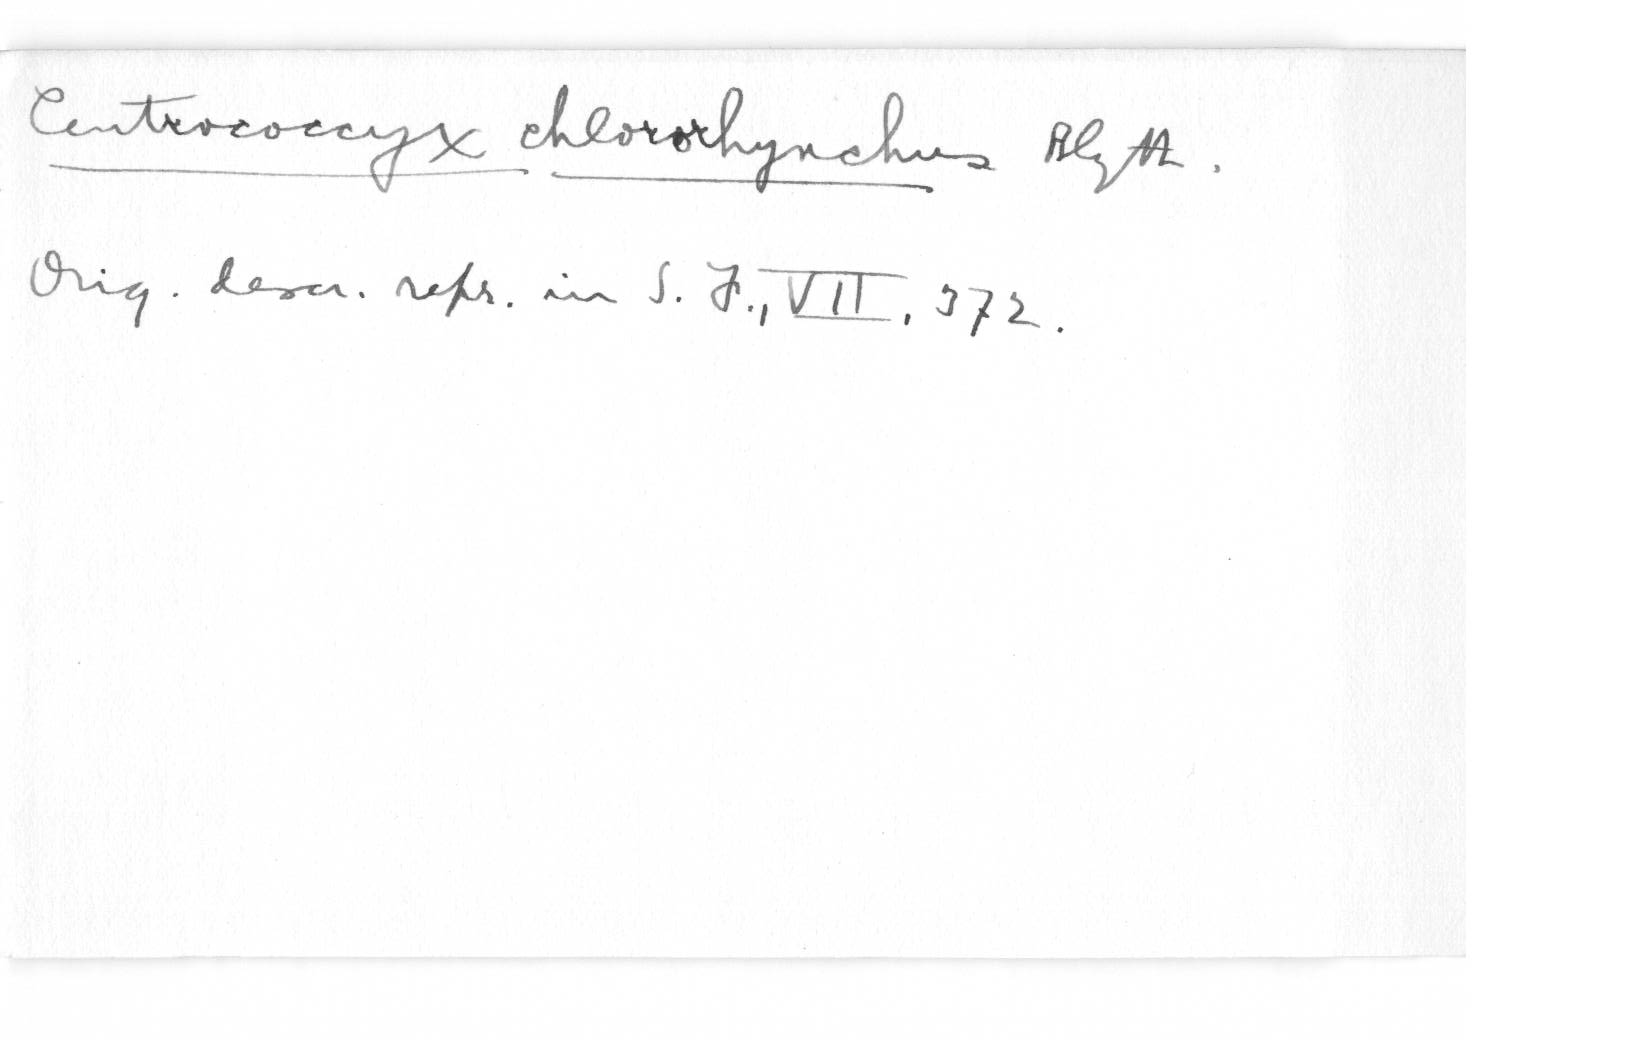 Centrococcyx chlororhynchus Blyth.
Orig. descr. repr. in S. F., VII, 372.